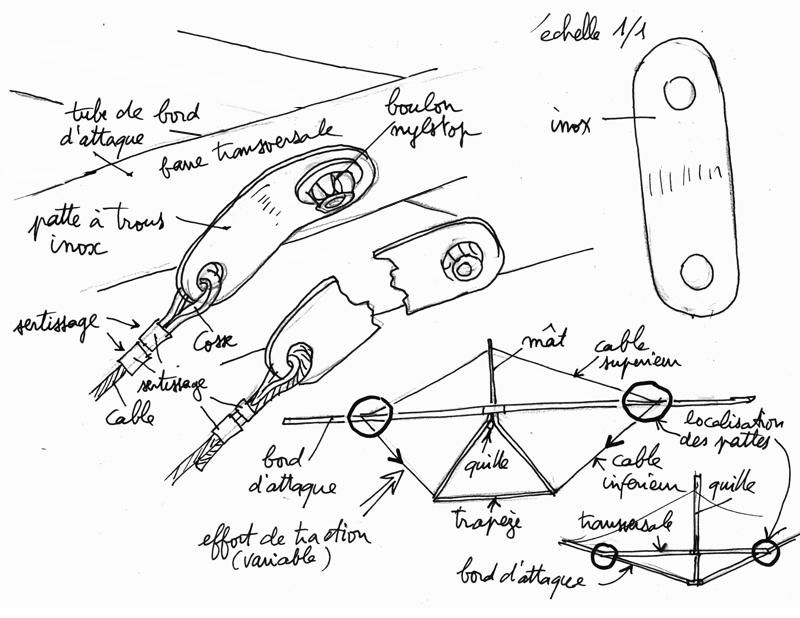 échelle 1/1
inox
tube de bord
d'attaque
barre transversale
boulon
nylstop
patte à trous
inox
sertissage
cosse
sertissage
cable
mât
cable
superieur
localisation
des pattes
bord
d'attaque
quille
cable
inferieur
trapèze
effort de traction
(variable)
quille
transversale
bord d'attaque